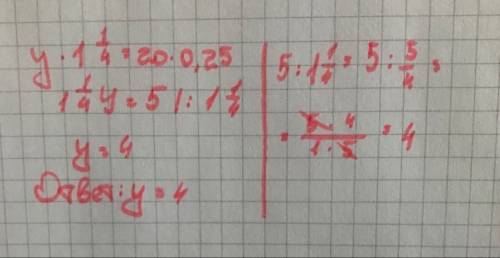 y · 1 1/4 = 20 · 0,25
1 1/4 y = 5 |: 1 1/4
y = 4
Ответ: y = 4
5 : 1 1/4 = 5 : 5/4 =
= (5 · 4)/(1 · 5) = 4